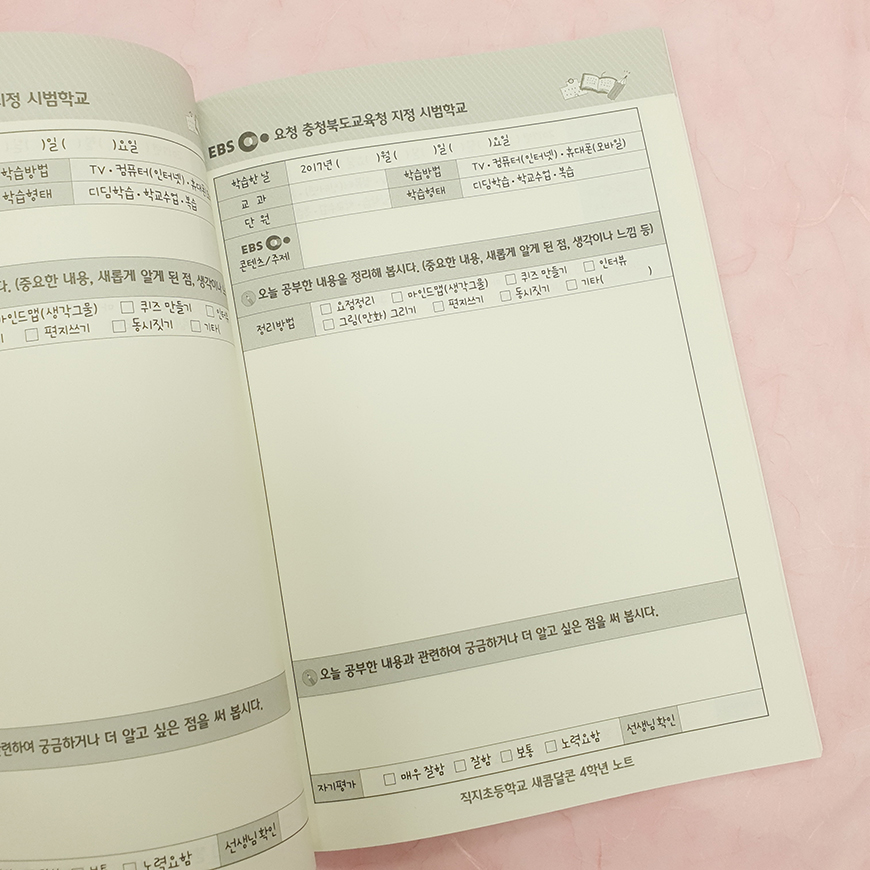 지정 시범학교
)일 ( )요일
학습방법 TV·컴퓨터(인터넷)·휴대폰(
학습형태 디딤학습·학교수업·복습
다. (중요한 내용, 새롭게 알게 된 점, 생각이나 느
마인드맵(생각그물) □ 퀴즈 만들기 □ 인터
□ 편지쓰기 □ 동시짓기 □ 기타(
관련하여 궁금하거나 더 알고 싶은 점을 써 봅시다.
□ 보통 □ 노력요함 선생님확인
EBS 요청 충청북도교육청 지정 시범학교
학습한 날 2017년 ( )월 ( )일 ( )요일
교 과 학습방법 TV·컴퓨터(인터넷)·휴대폰(모바일)
단 원 학습형태 디딤학습·학교수업·복습
EBS
콘텐츠/주제
오늘 공부한 내용을 정리해 봅시다. (중요한 내용, 새롭게 알게 된 점, 생각이나 느낌 등)
정리방법 □ 요점정리 □ 마인드맵(생각그물) □ 퀴즈 만들기 □ 인터뷰
□ 그림(만화) 그리기 □ 편지쓰기 □ 동시짓기 □ 기타( )
오늘 공부한 내용과 관련하여 궁금하거나 더 알고 싶은 점을 써 봅시다.
자기평가 □ 매우 잘함 □ 잘함 □ 보통 □ 노력요함 선생님확인
직지초등학교 새콤달콘 4학년 노트